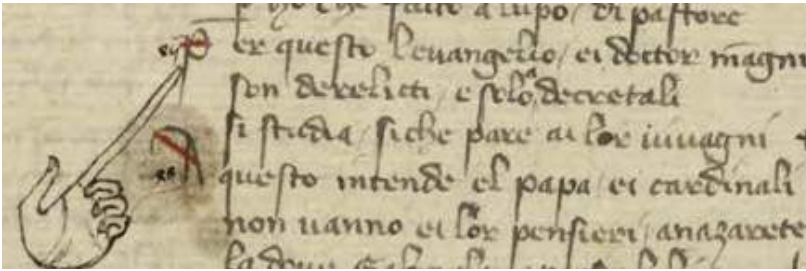 p che facto a lupo / di pastore
P er questo levangelio / ei doctor magni
son derelicti / e solo a decretali
si studia / siche pare ai lor iuuagni
A questo intende el papa / ei cardinali
non uanno ei lor pensieri / anazarete
la doue Gabriel